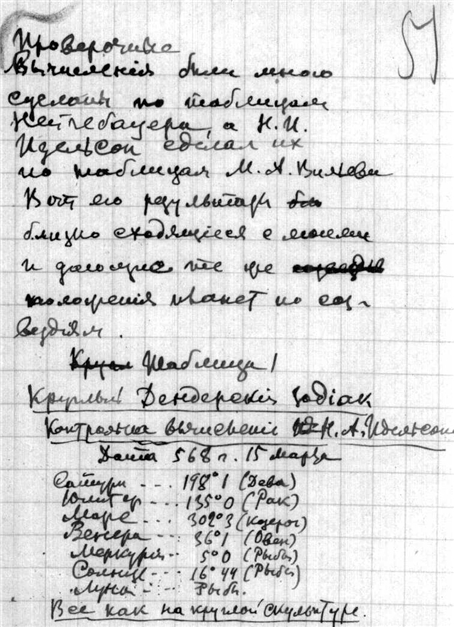 57
Проверочные
Вычисленiя были мною
сделаны по таблицам
Нейгебауера, а Н.И.
Идельсон сделал их
по таблицам М. А. Вильева
Вот его результаты
близко сходящiеся с моими
и дающие те же
положенiя планет по соз-
вѣздiям.
Таблица I
Круглый Дендерскiй Зодiак
Контрольна вычисленiя Н. А. Идельсона
Дата 568 г. 15 марта
Сатурн --- 198°1 (Дева)
Юпитер --- 135°0 (Рак)
Марс --- 302°3 (Козерог)
Венера --- 36°1 (Овен)
Меркурий --- 5°0 (Рыбы)
Солнце --- 16°44 (Рыбы)
Луна --- Рыбы.
Все как на круглой скульптуре.